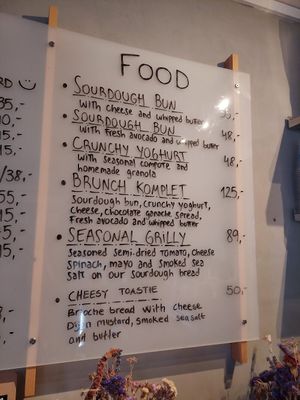 RD
35,-
15,-
15,-
/38,-
55,-
15,-
45,-
15,-
FOOD
• SOURDOUGH BUN 35,-
with cheese and whipped butter
• SOURDOUGH BUN 48,-
with fresh avocado and whipped butter
• CRUNCHY YOGHURT 48,-
with seasonal compote and
homemade granola
• BRUNCH KOMPLET 125,-
Sourdough bun, crunchy yoghurt,
Cheese, chocolate ganache spread,
Fresh avocado and whipped butter
• SEASONAL GRILLY 89,-
Seasoned semi-dried tomato, cheese
Spinach, mayo and smoked sea
salt on our sourdough bread
• CHEESY TOASTIE 50,-
Brioche bread with cheese
Dijon mustard, smoked sea salt
and butter